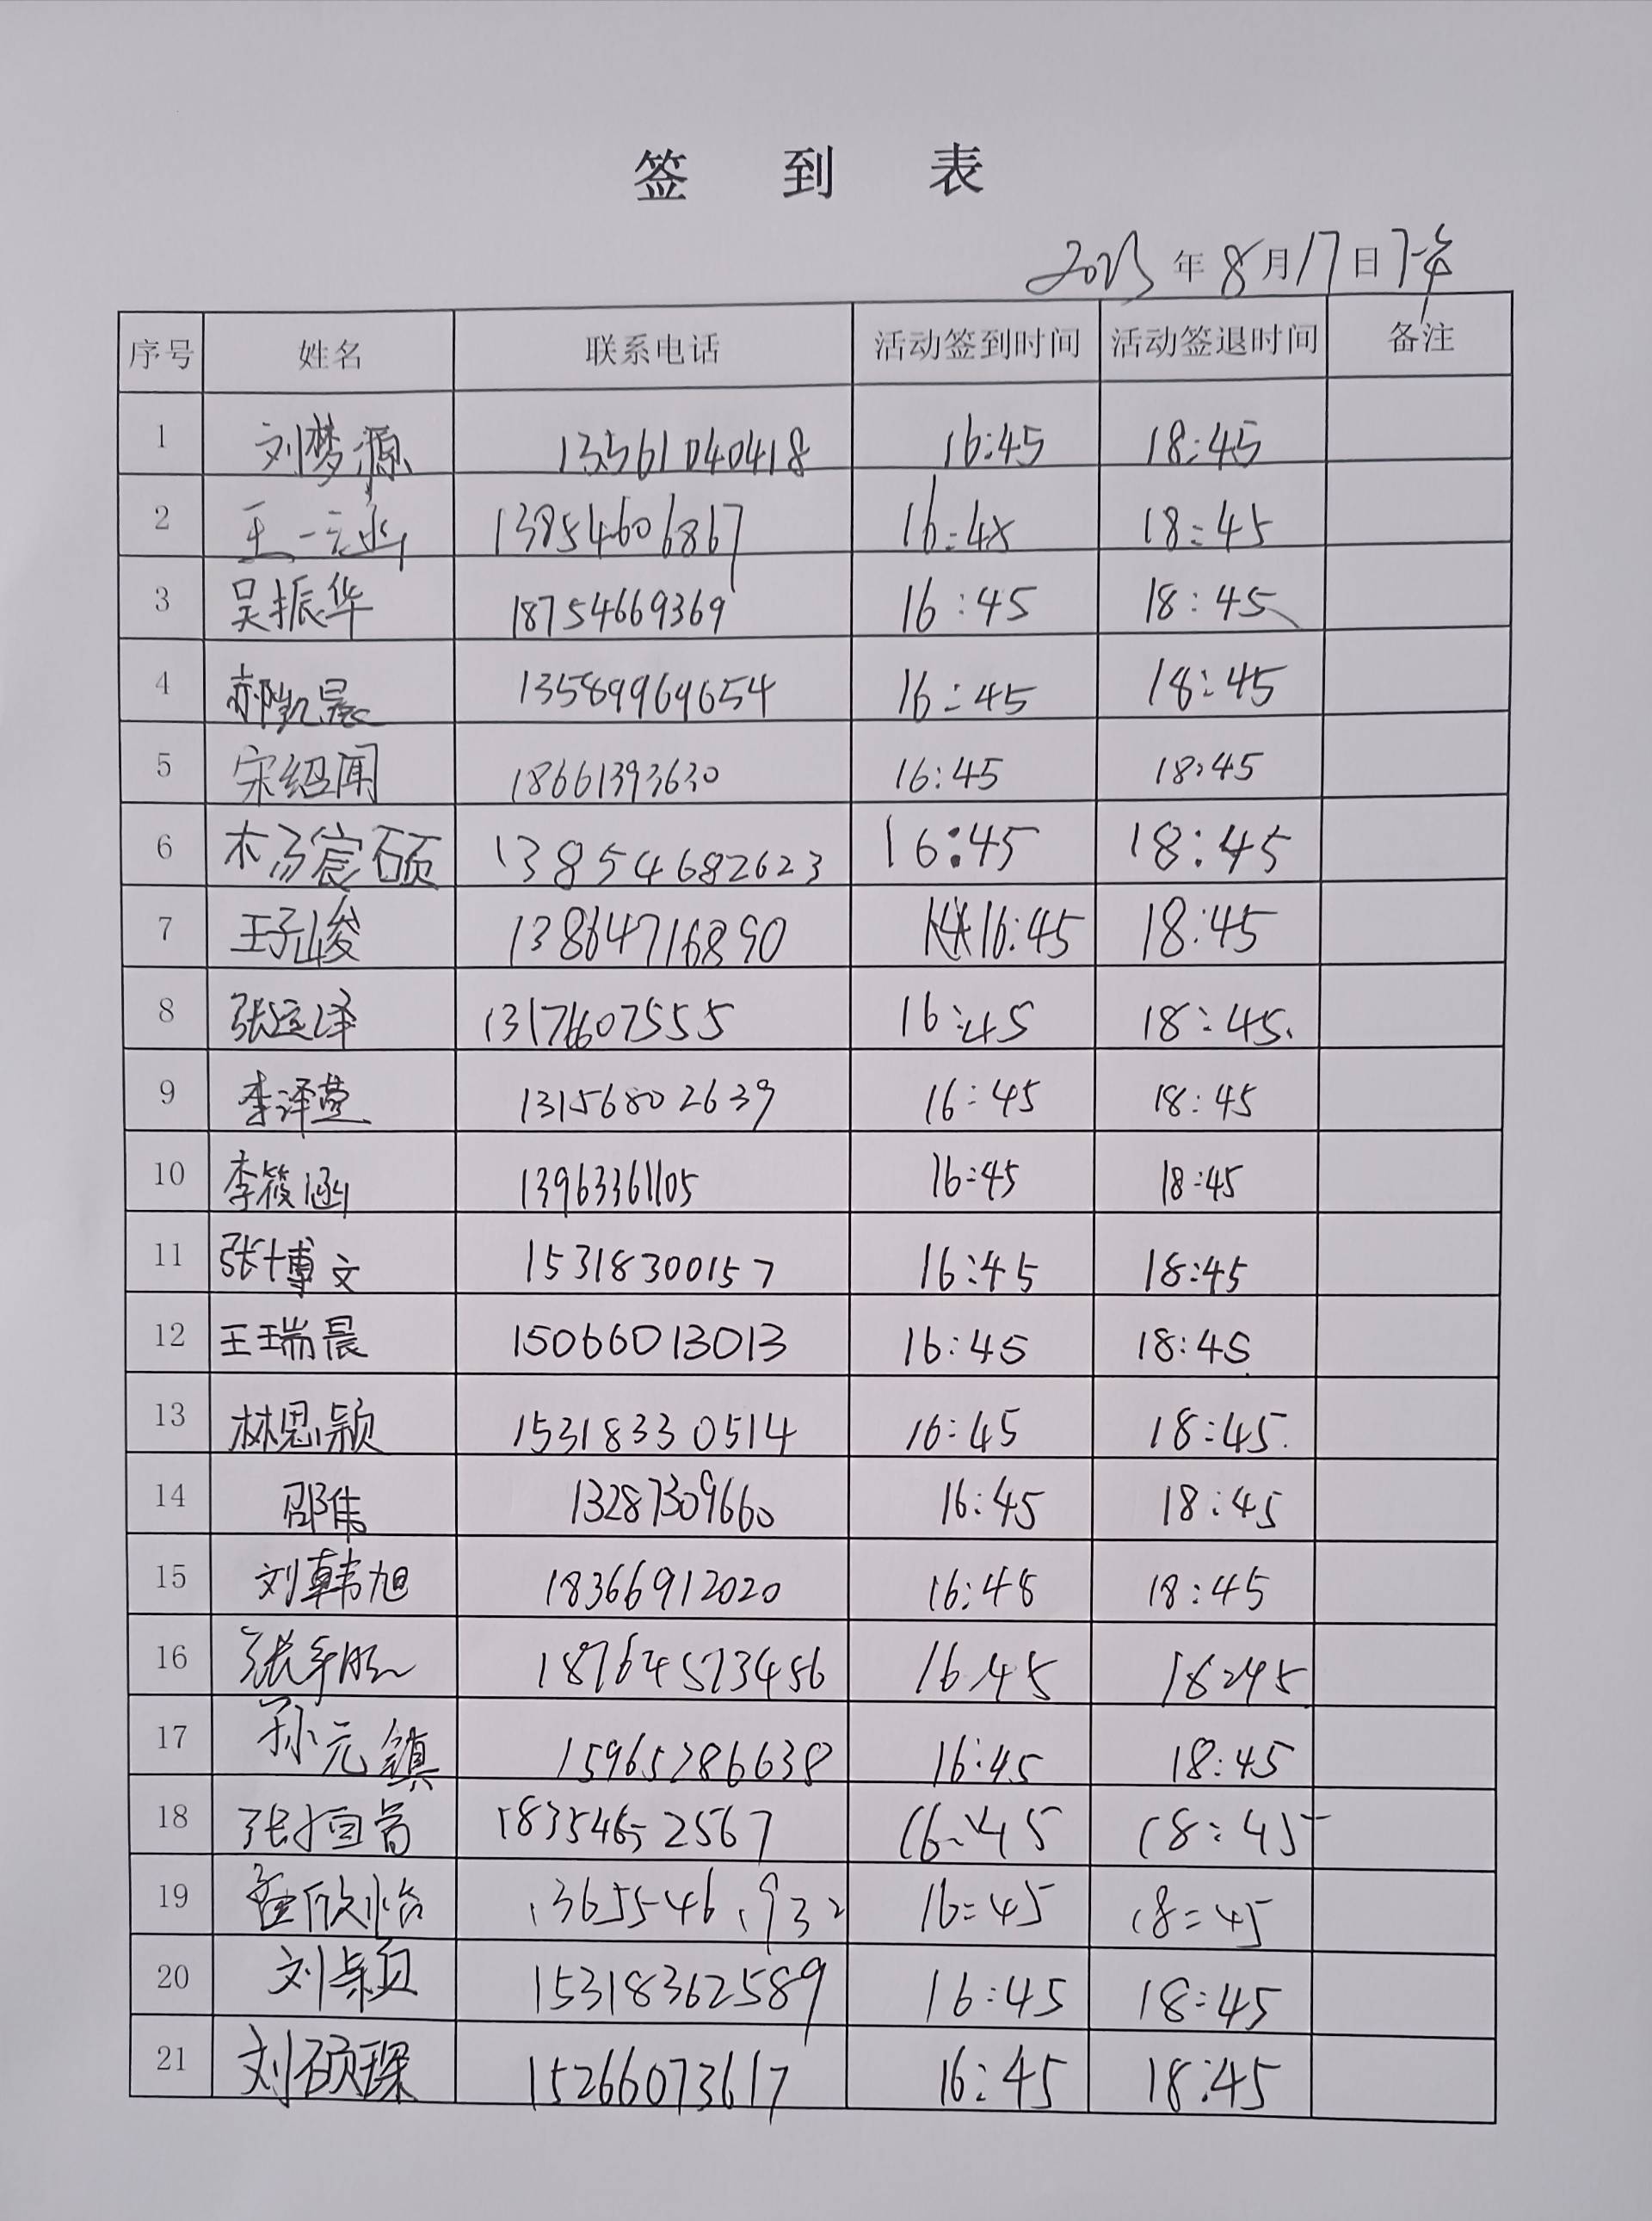 签 到 表
2023年8月17日下午
序号 姓名 联系电话 活动签到时间 活动签退时间 备注
1 刘梦源 13561040418 16:45 18:45
2 王一涵 13854606867 16:45 18:45
3 吴振华 18754669369 16:45 18:45
4 郝凯晨 13589969654 16:45 18:45
5 宋绍闻 18661393630 16:45 18:45
6 杨宸硕 13854682623 16:45 18:45
7 王子峻 13864716890 16:45 18:45
8 张运泽 13176607555 16:45 18:45
9 李泽萱 13156802639 16:45 18:45
10 李筱涵 13963361105 16:45 18:45
11 张博文 15318300157 16:45 18:45
12 王瑞晨 15066013013 16:45 18:45
13 林思颖 15318330514 16:45 18:45
14 邵伟 13287309660 16:45 18:45
15 刘韩旭 18366912020 16:45 18:45
16 18764573456 16:45 18:45
17 孙元镇 15965286638 16:45 18:45
18 张恒 16:45 18:45
19 欣怡 16:45 18:45
20 刘颖 15318362589 16:45 18:45
21 刘硕琛 15266073617 16:45 18:45